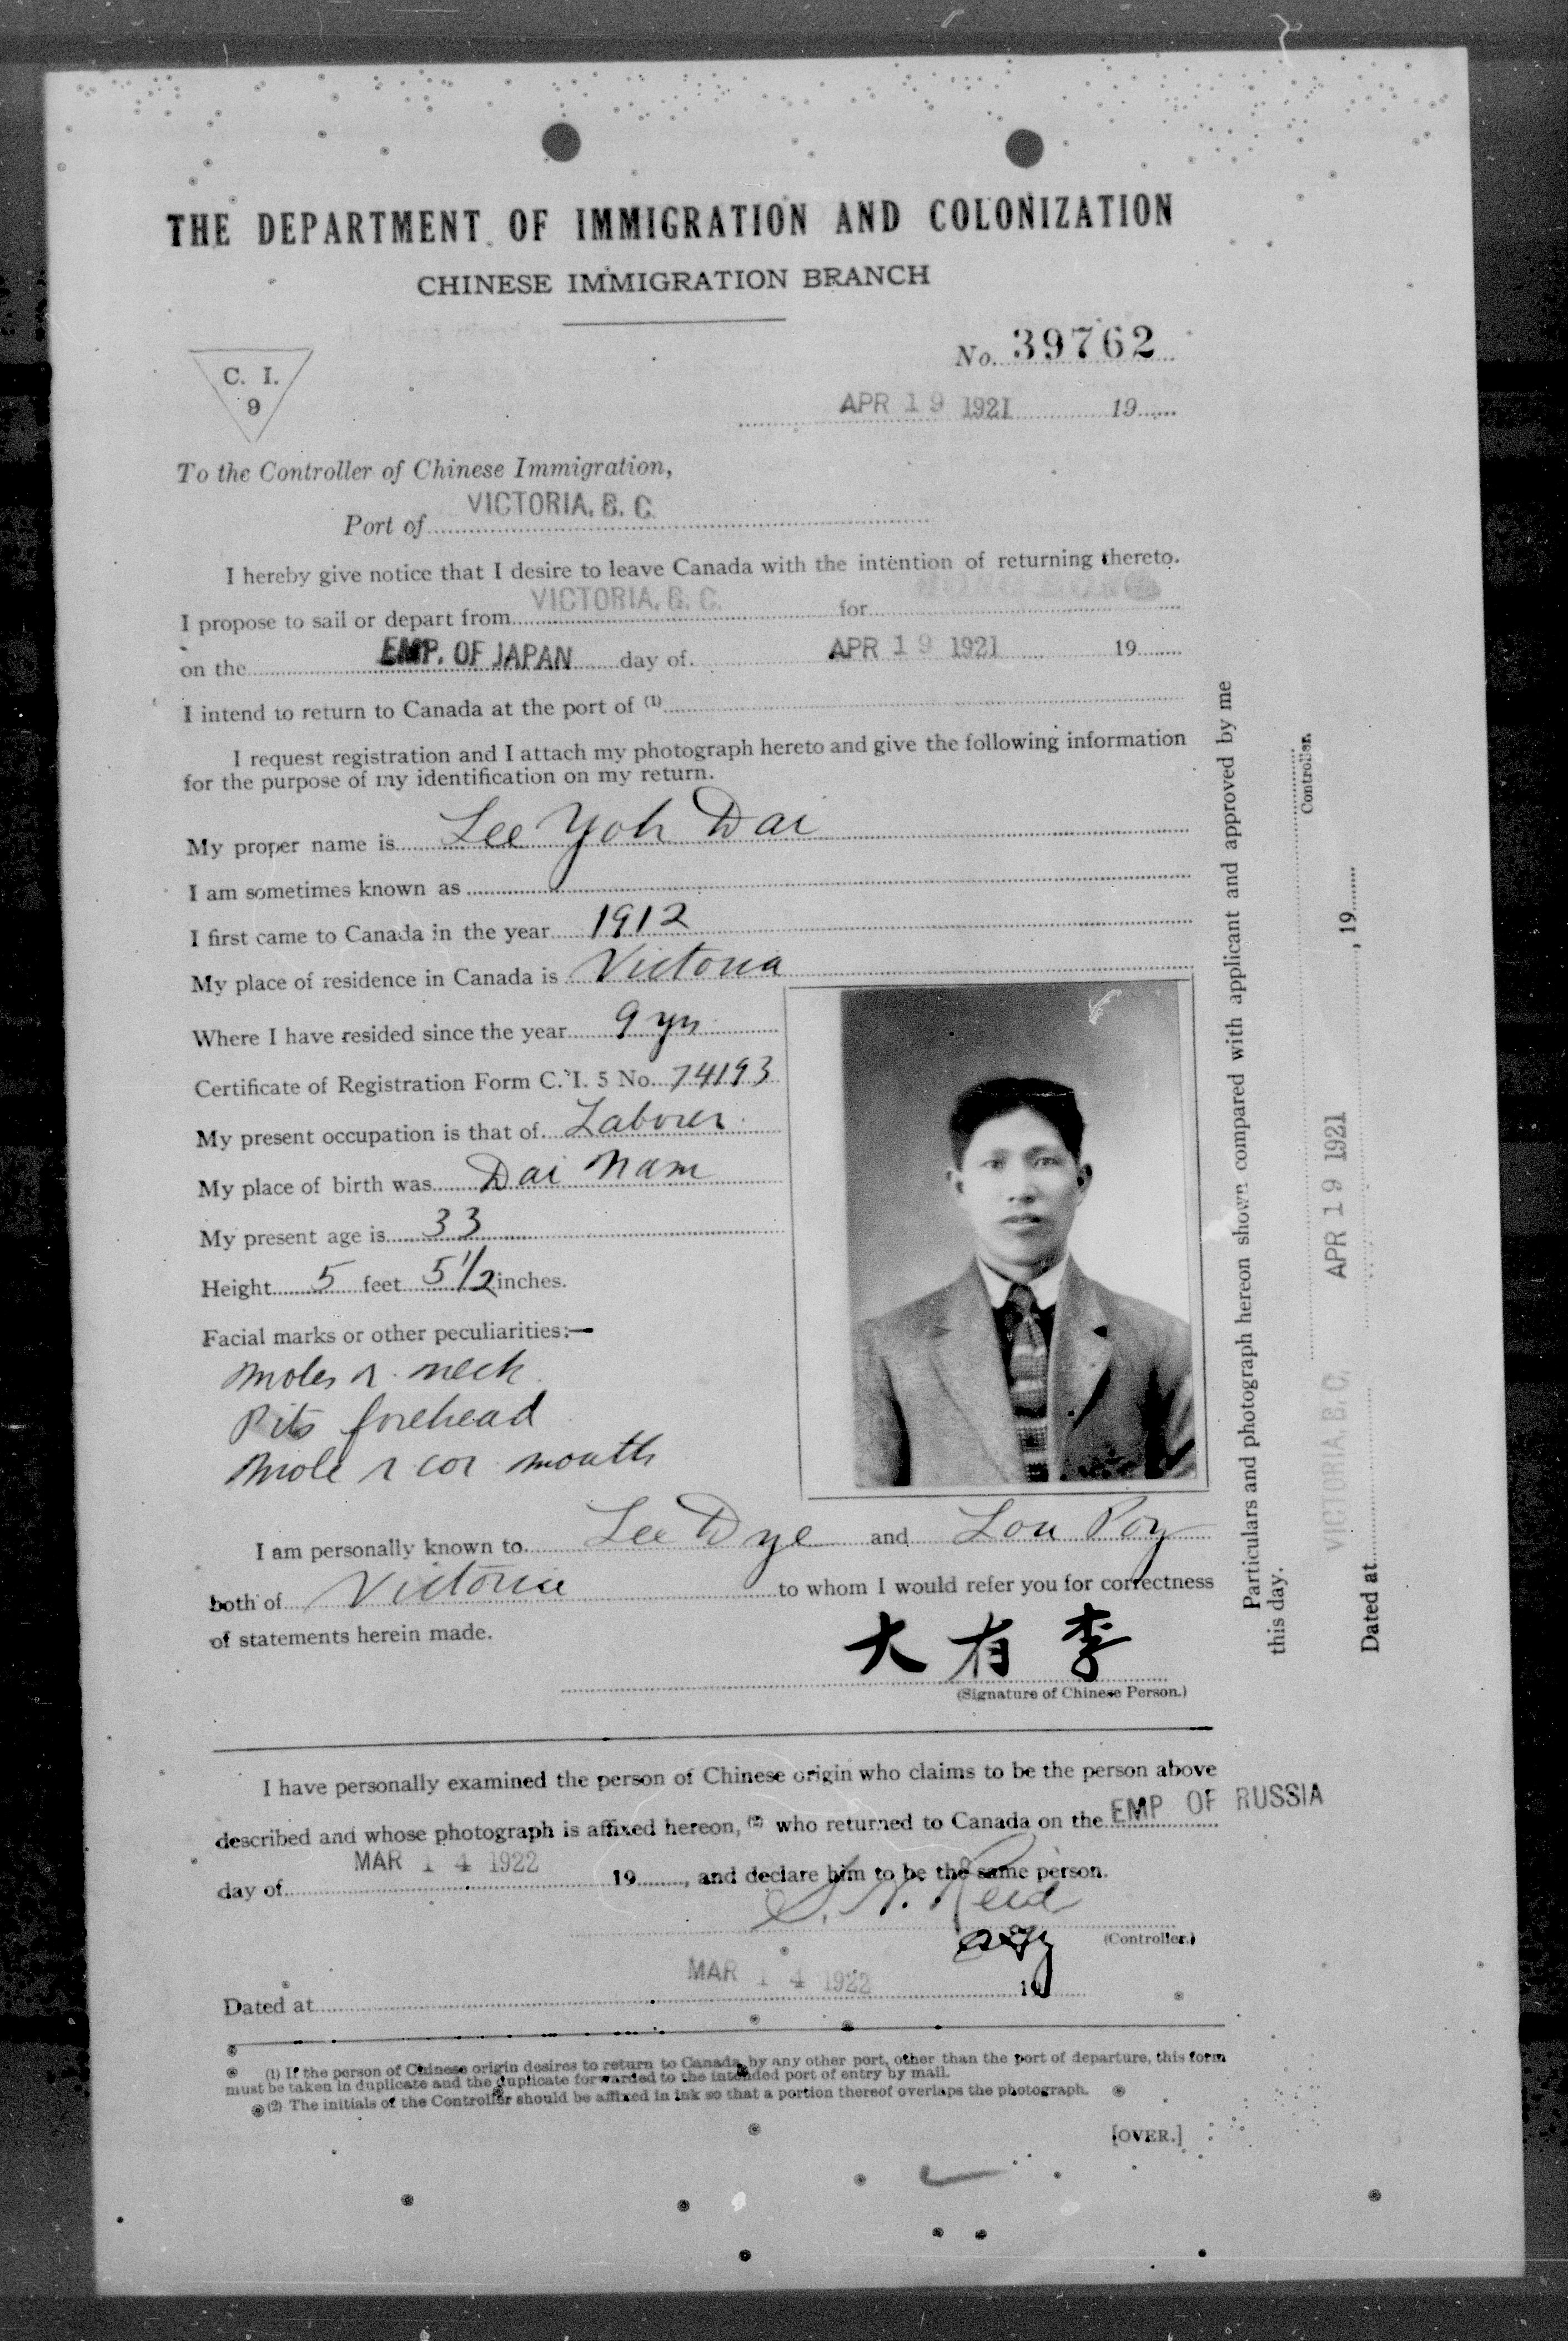 THE DEPARTMENT OF IMMIGRATION AND COLONIZATION
CHINESE IMMIGRATION BRANCH
No. 39762
C. I.
9
APR 19 1921 19
To the Controller of Chinese Immigration,
VICTORIA, B. C.
Port of
I hereby give notice that I desire to leave Canada with the intention of returning thereto.
I propose to sail or depart from VICTORIA, B. C. for
on the EMP. OF JAPAN day of APR 19 1921 19
I intend to return to Canada at the port of (1)
I request registration and I attach my photograph hereto and give the following information
for the purpose of my identification on my return.
My proper name is Lee Yoh Dai
I am sometimes known as
I first came to Canada in the year 1912
My place of residence in Canada is Victoria
Where I have resided since the year 9 yrs
Certificate of Registration Form C. I. 5 No. 74193
My present occupation is that of Laborer
My place of birth was Dai Nam
My present age is 33
Height 5 feet 5 1/2 inches.
Facial marks or other peculiarities:—
Moles r. neck
Pits forehead
Mole r cor mouth
I am personally known to Lee Dye and Lou Poy
both of Victoria to whom I would refer you for correctness
of statements herein made.
大有李
(Signature of Chinese Person.)
I have personally examined the person of Chinese origin who claims to be the person above
described and whose photograph is affixed hereon, (2) who returned to Canada on the EMP OF RUSSIA
day of MAR 14 1922 19, and declare him to be the same person.
S. N. Reid
(Controller.)
Dated at MAR 14 1922 19
(1) If the person of Chinese origin desires to return to Canada by any other port, other than the port of departure, this form
must be taken in duplicate and the duplicate forwarded to the intended port of entry by mail.
(2) The initials of the Controller should be affixed in ink so that a portion thereof overlaps the photograph.
[OVER.]
Particulars and photograph hereon shown compared with applicant and approved by me
this day.
Controller.
VICTORIA, B. C. APR 19 1921
Dated at , 19